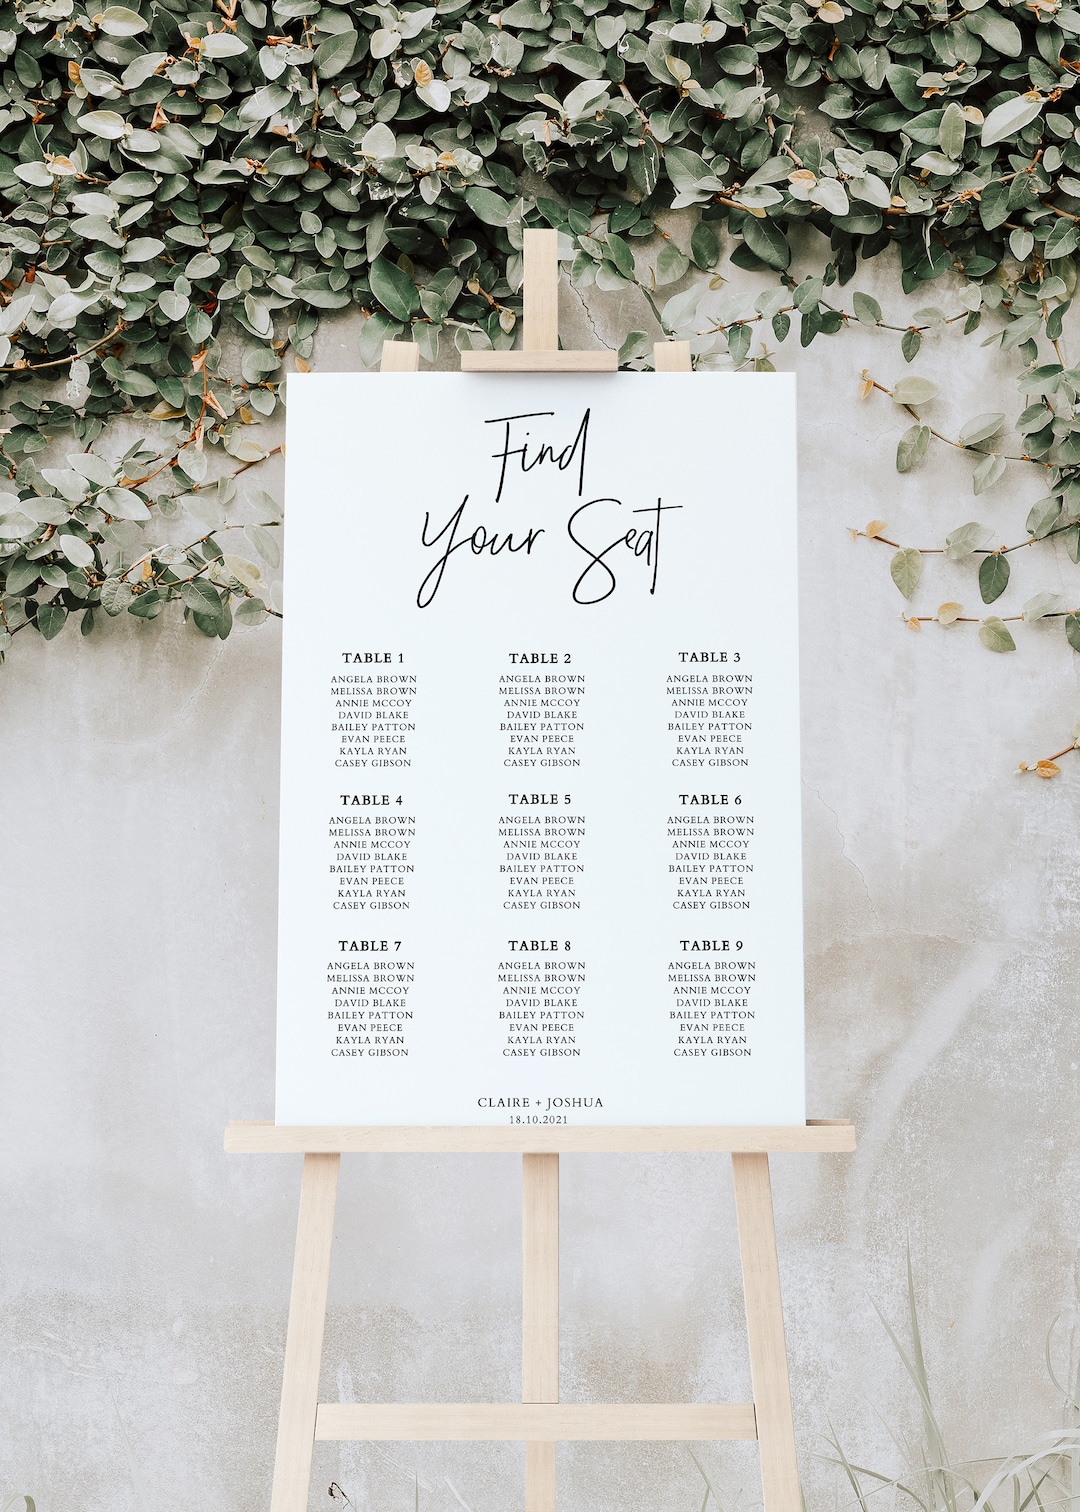 Find
Your Seat
TABLE 1
ANGELA BROWN
MELISSA BROWN
ANNIE MCCOY
DAVID BLAKE
BAILEY PATTON
EVAN PEECE
KAYLA RYAN
CASEY GIBSON
TABLE 2
ANGELA BROWN
MELISSA BROWN
ANNIE MCCOY
DAVID BLAKE
BAILEY PATTON
EVAN PEECE
KAYLA RYAN
CASEY GIBSON
TABLE 3
ANGELA BROWN
MELISSA BROWN
ANNIE MCCOY
DAVID BLAKE
BAILEY PATTON
EVAN PEECE
KAYLA RYAN
CASEY GIBSON
TABLE 4
ANGELA BROWN
MELISSA BROWN
ANNIE MCCOY
DAVID BLAKE
BAILEY PATTON
EVAN PEECE
KAYLA RYAN
CASEY GIBSON
TABLE 5
ANGELA BROWN
MELISSA BROWN
ANNIE MCCOY
DAVID BLAKE
BAILEY PATTON
EVAN PEECE
KAYLA RYAN
CASEY GIBSON
TABLE 6
ANGELA BROWN
MELISSA BROWN
ANNIE MCCOY
DAVID BLAKE
BAILEY PATTON
EVAN PEECE
KAYLA RYAN
CASEY GIBSON
TABLE 7
ANGELA BROWN
MELISSA BROWN
ANNIE MCCOY
DAVID BLAKE
BAILEY PATTON
EVAN PEECE
KAYLA RYAN
CASEY GIBSON
TABLE 8
ANGELA BROWN
MELISSA BROWN
ANNIE MCCOY
DAVID BLAKE
BAILEY PATTON
EVAN PEECE
KAYLA RYAN
CASEY GIBSON
TABLE 9
ANGELA BROWN
MELISSA BROWN
ANNIE MCCOY
DAVID BLAKE
BAILEY PATTON
EVAN PEECE
KAYLA RYAN
CASEY GIBSON
CLAIRE + JOSHUA
18.10.2021